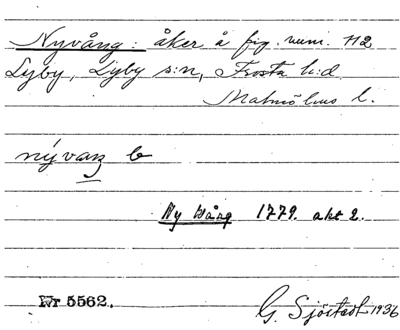 Nyvång: åker å fig. num. 112
Lyby, Lyby s:n, Frosta h:d
Malmöhus l.
nývaŋ b
Ny Wång 1779. akt 2.
Nr 5562.
G. Sjöstedt 1936